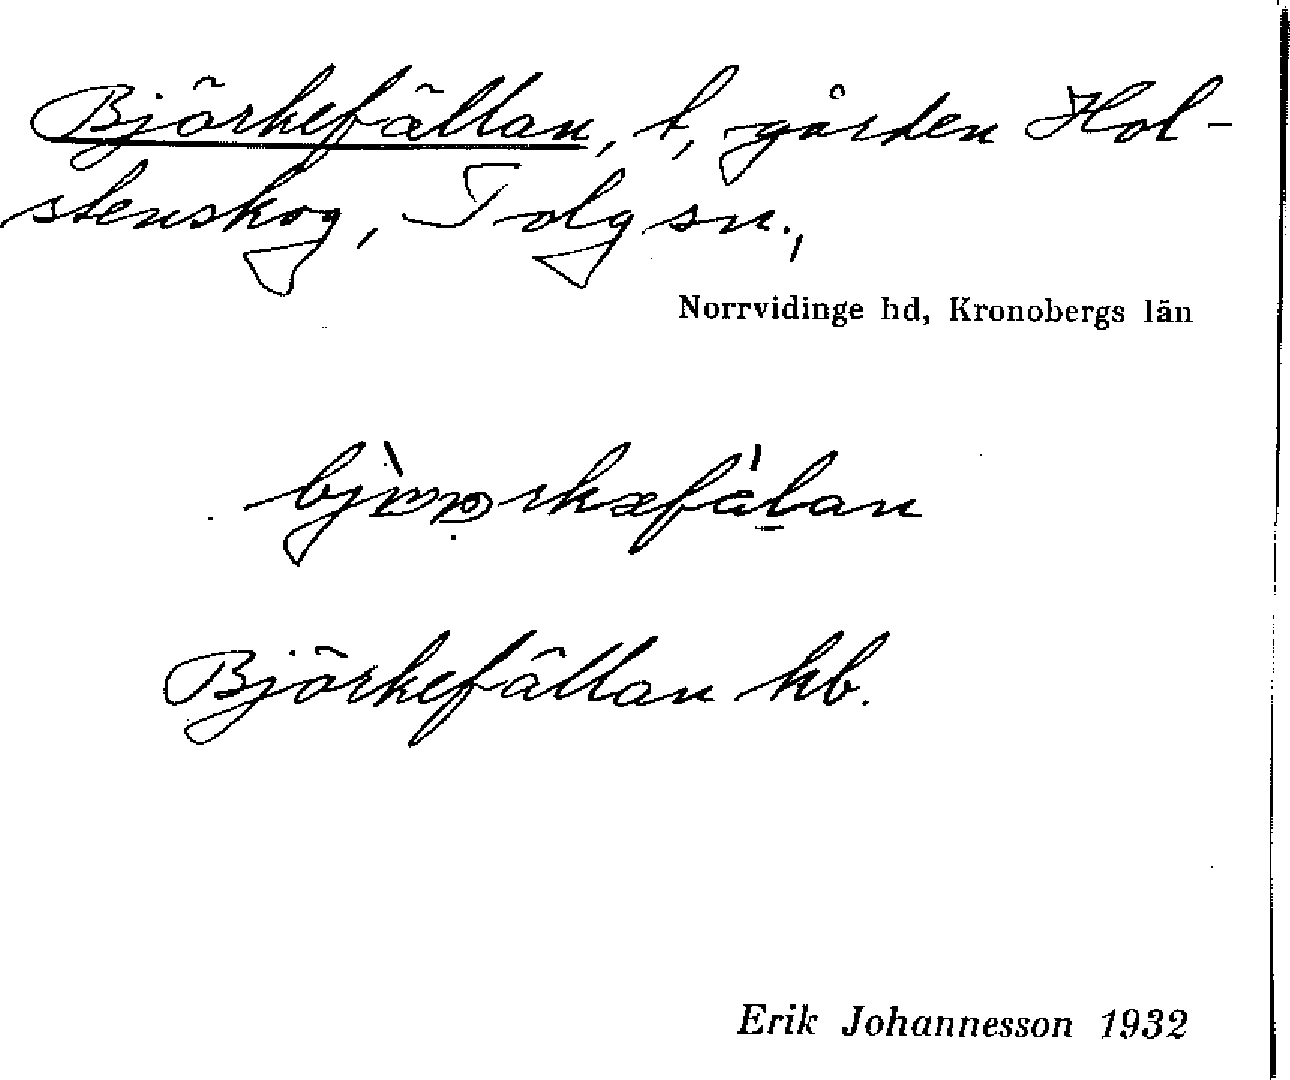 Björkefällan, t, gården Hol-
stenskog, Tolg sn.,
Norrvidinge hd, Kronobergs län
Björkefällan kb.
Erik Johannesson 1932